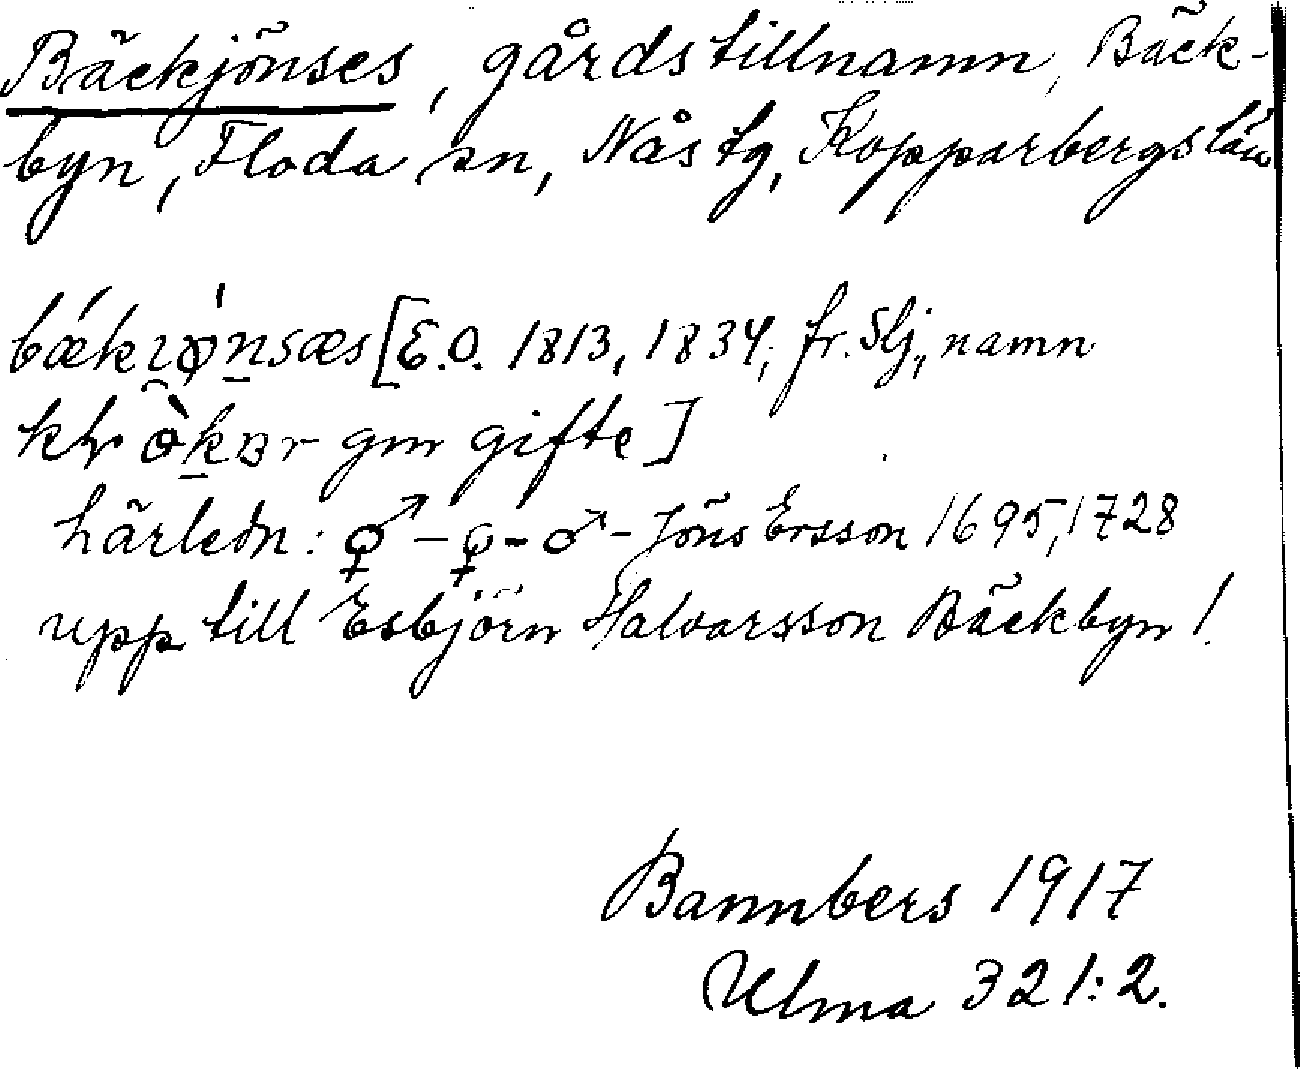 Bäckjönses, gårdstillnamn, Bäck-
byn, Floda sn, Nås tg, Kopparbergs län
[E.O. 1813, 1834, fr. Slj., namn
gm gifte]
härledn: ♂♀ – ♀ – ♂ – Jöns Ersson 1695, 1728
upp till Esbjörn Halvarsson Bäckbyn!
Bannbers 1917
Ulma 321:2.